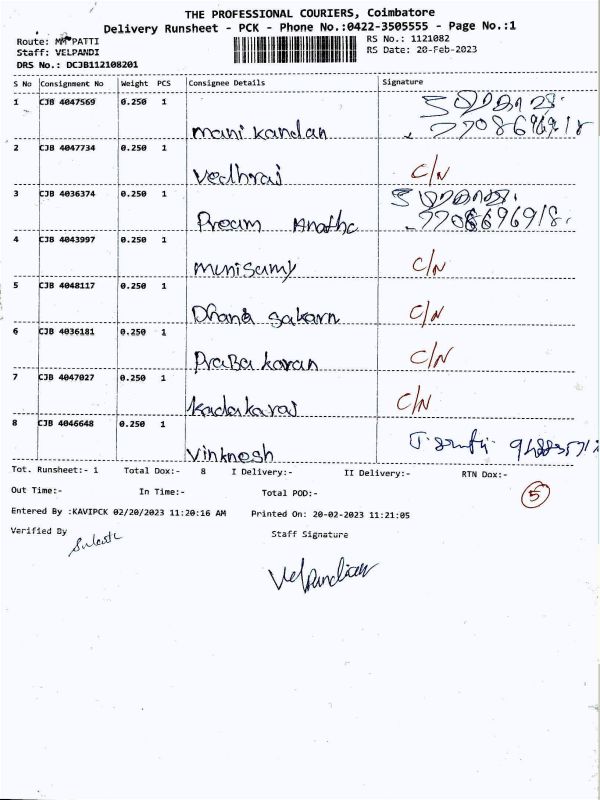 THE PROFESSIONAL COURIERS, Coimbatore
Delivery Runsheet - PCK - Phone No.:0422-3505555 - Page No.:1
Route: MM PATTI RS No.: 1121082
Staff: VELPANDI RS Date: 20-Feb-2023
DRS No.: DCJB112108201
S No Consignment No Weight PCS Consignee Details Signature
1 CJB 4047569 0.250 1
mani kandan 7708696918
2 CJB 4047734 0.250 1
Vedhraj C/N
3 CJB 4036374 0.250 1
Preám Anatha 7708696918
4 CJB 4043997 0.250 1
munisamy C/N
5 CJB 4048117 0.250 1
Dhana Sakarn C/N
6 CJB 4036181 0.250 1
PraBa karan C/N
7 CJB 4047027 0.250 1
Kadakaraj C/N
8 CJB 4046648 0.250 1
Vinknesh
Tot. Runsheet:- 1 Total Dox:- 8 I Delivery:- II Delivery:- RTN Dox:-
Out Time:- In Time:- Total POD:- 5
Entered By :KAVIPCK 02/20/2023 11:20:16 AM Printed On: 20-02-2023 11:21:05
Verified By Staff Signature
Velpandian